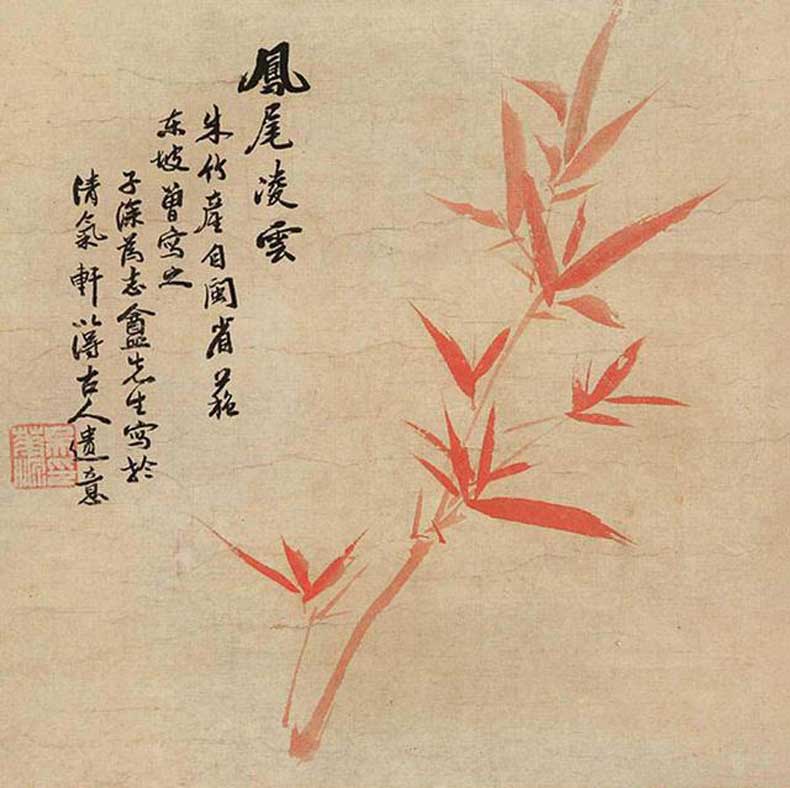 鳳尾凌雲
朱竹產自閩省蘇
东坡曾寫之
子深為志盦先生寫於
清氣軒以得古人遺意